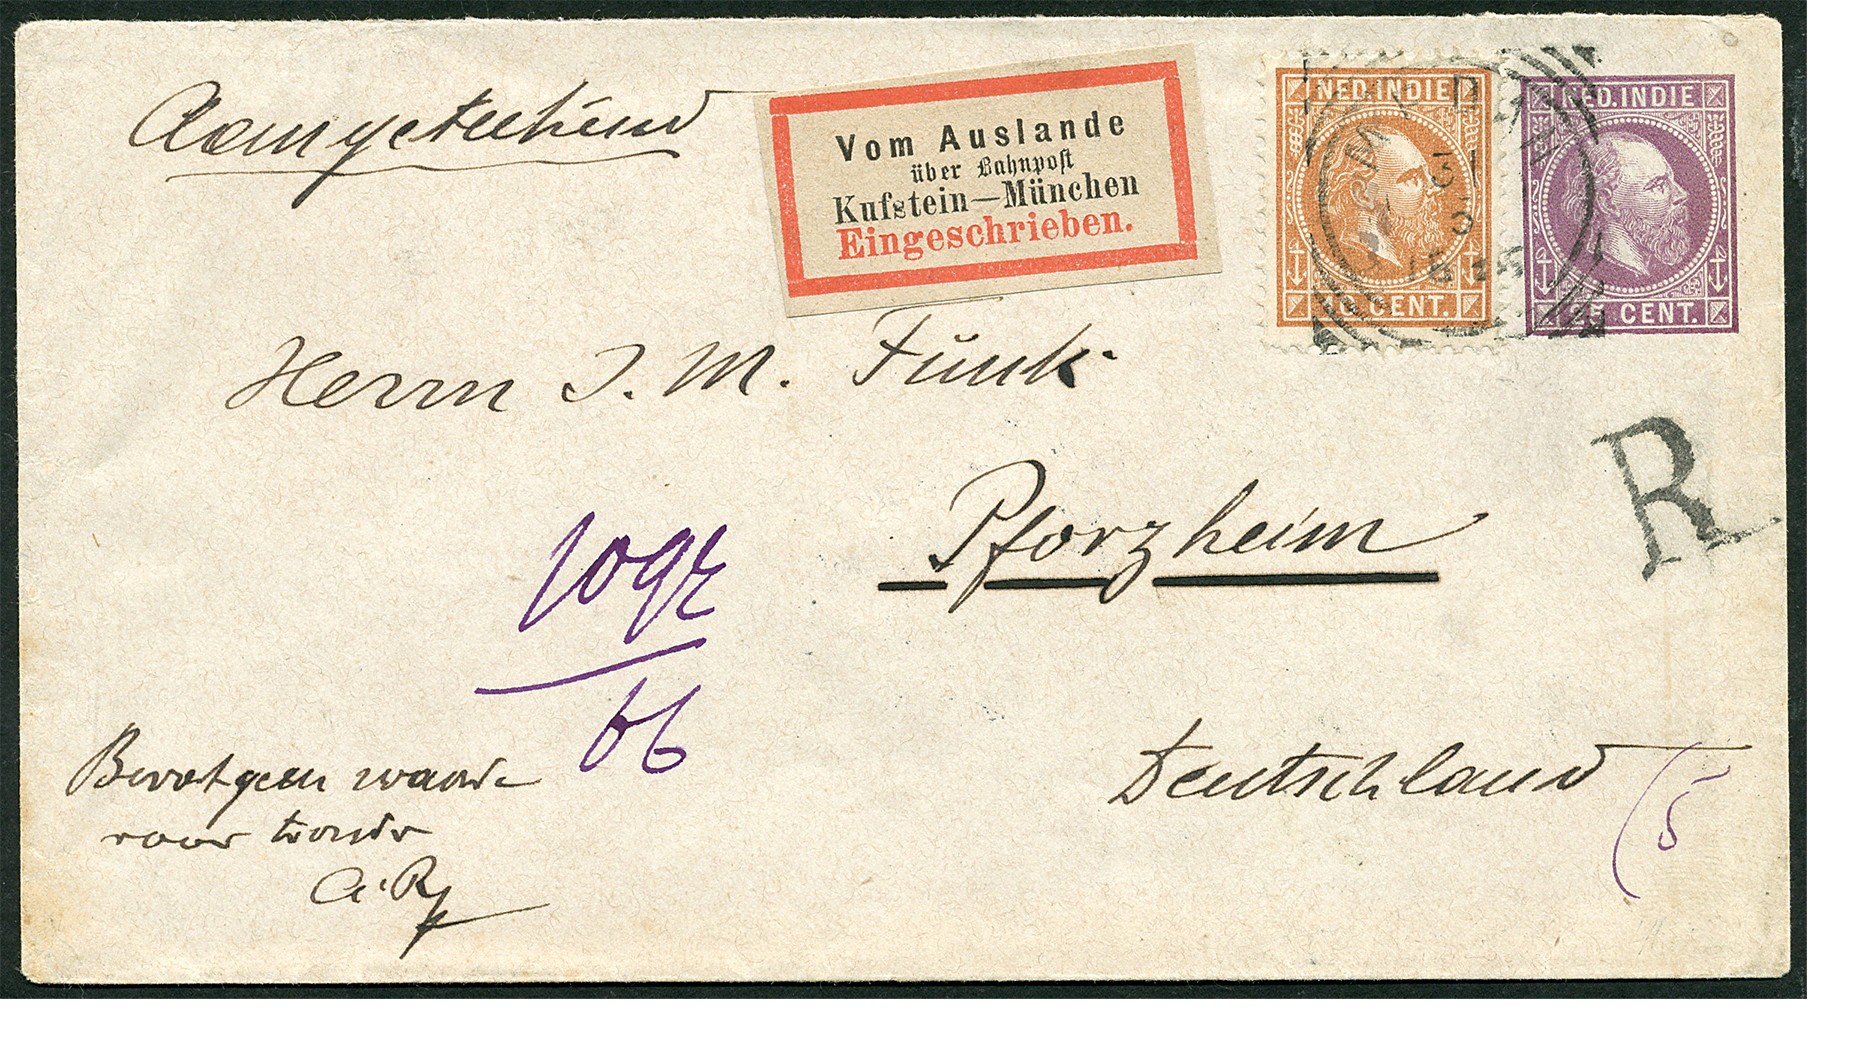 Aangeteekend
Vom Auslande
über Bahnpost
Kufstein—München
Eingeschrieben.
NED. INDIE
10 CENT.
NED. INDIE
25 CENT.
31
5
R
Herrn J. M. Funk
Pforzheim
Deutschland
66
Bevat geen waarde
voor derde